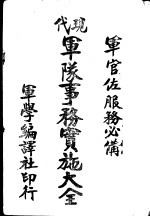 軍官佐服務必備
現代
軍隊事務實施大全
軍學編譯社印行